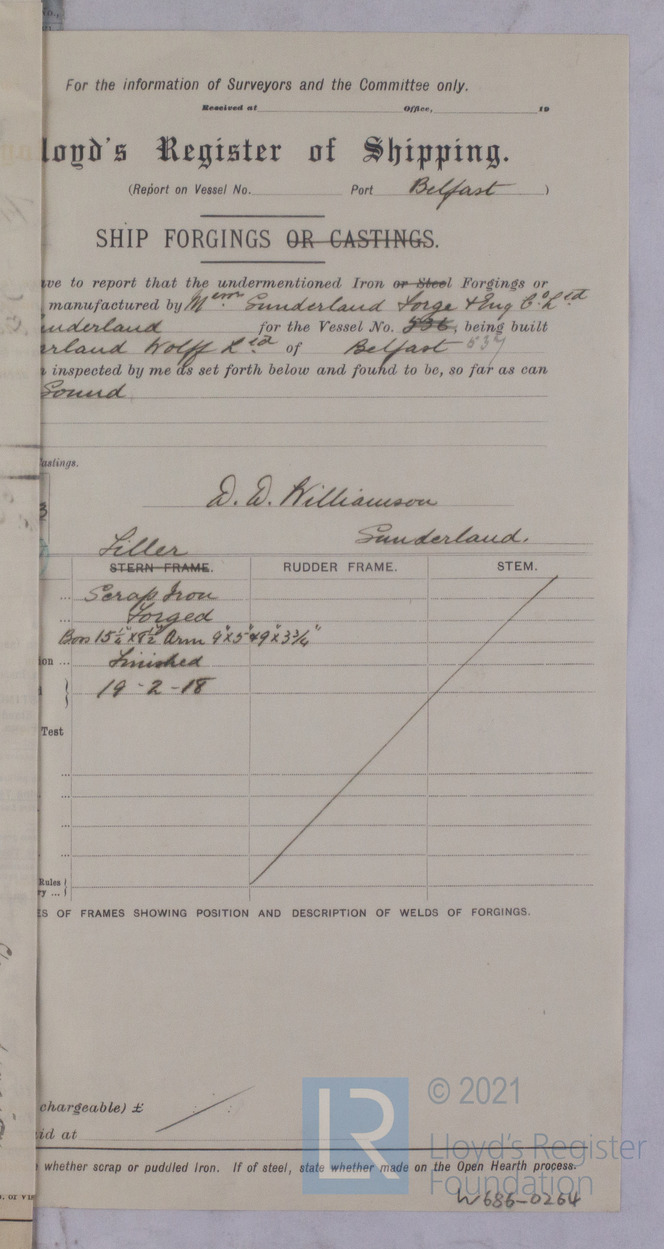 For the information of Surveyors and the Committee only.
Received at Office, 19
loyd's Register of Shipping.
(Report on Vessel No. Port Belfast )
SHIP FORGINGS OR CASTINGS.
ve to report that the undermentioned Iron or Steel Forgings or
manufactured by Messrs Sunderland Forge & Eng Co Ltd
underland for the Vessel No. 536, being built
erland Wolff Ltd of Belfast 537
inspected by me as set forth below and found to be, so far as can
Sound
Castings.
D. D. Williamson
Sunderland.
Tiller
STERN FRAME. RUDDER FRAME. STEM.
... Scrap Iron
... Forged
Boss 15¼" x 8½" Arm 9" x 5" & 9 x 3¾"
ion ... Finished
19-2-18
Test
...
...
...
...
Rules
ry ...
ES OF FRAMES SHOWING POSITION AND DESCRIPTION OF WELDS OF FORGINGS.
chargeable) £
id at
whether scrap or puddled Iron. If of steel, state whether made on the Open Hearth process.
LR
© 2021
Lloyd's Register
Foundation
W686-0264